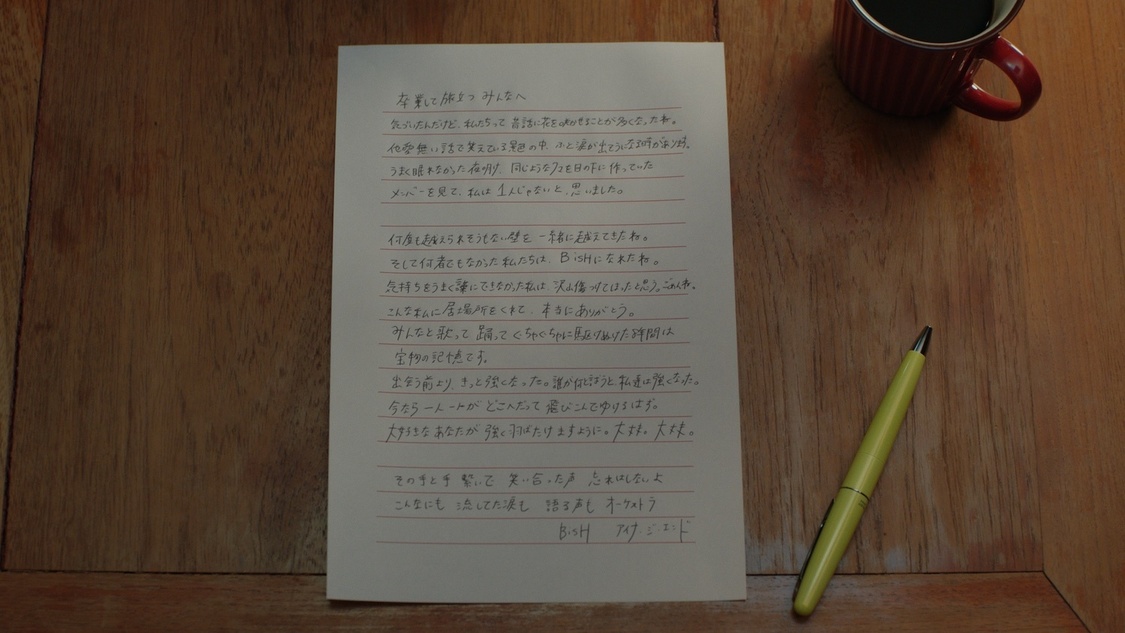 卒業して旅立つ みんなへ
気づいたんだけど、私たちって 昔話に花を咲かせることが多くなったね。
他愛無い話で笑えている景色の中、ふと涙が出そうになる時があります。
うまく眠れなかった夜明け、同じようなクマを目の下に作っていた
メンバーを見て、私は 1人じゃないと、思いました。
何度も越えられそうもない壁を 一緒に越えてきたね。
そして何者でもなかった私たちは、BiSHになれたね。
気持ちをうまく言葉にできなかった私は、沢山傷つけてしまったと思う。ごめんね。
こんな私に居場所をくれて、本当にありがとう。
みんなと歌って 踊って ぐちゃぐちゃに駆けぬけた時間は
宝物の記憶です。
出会う前より、きっと強くなった。誰が何と言おうと、私達は強くなった。
今なら 一人一人が どこへだって 飛びこんでゆけるはず。
大好きなあなたが 強く羽ばたけますように。大丈夫。大丈夫。
その手と手 繋いで 笑い合った声 忘れはしないよ
こんなにも 流してた涙も 語る声も オーケストラ
BiSH アイナ・ジ・エンド